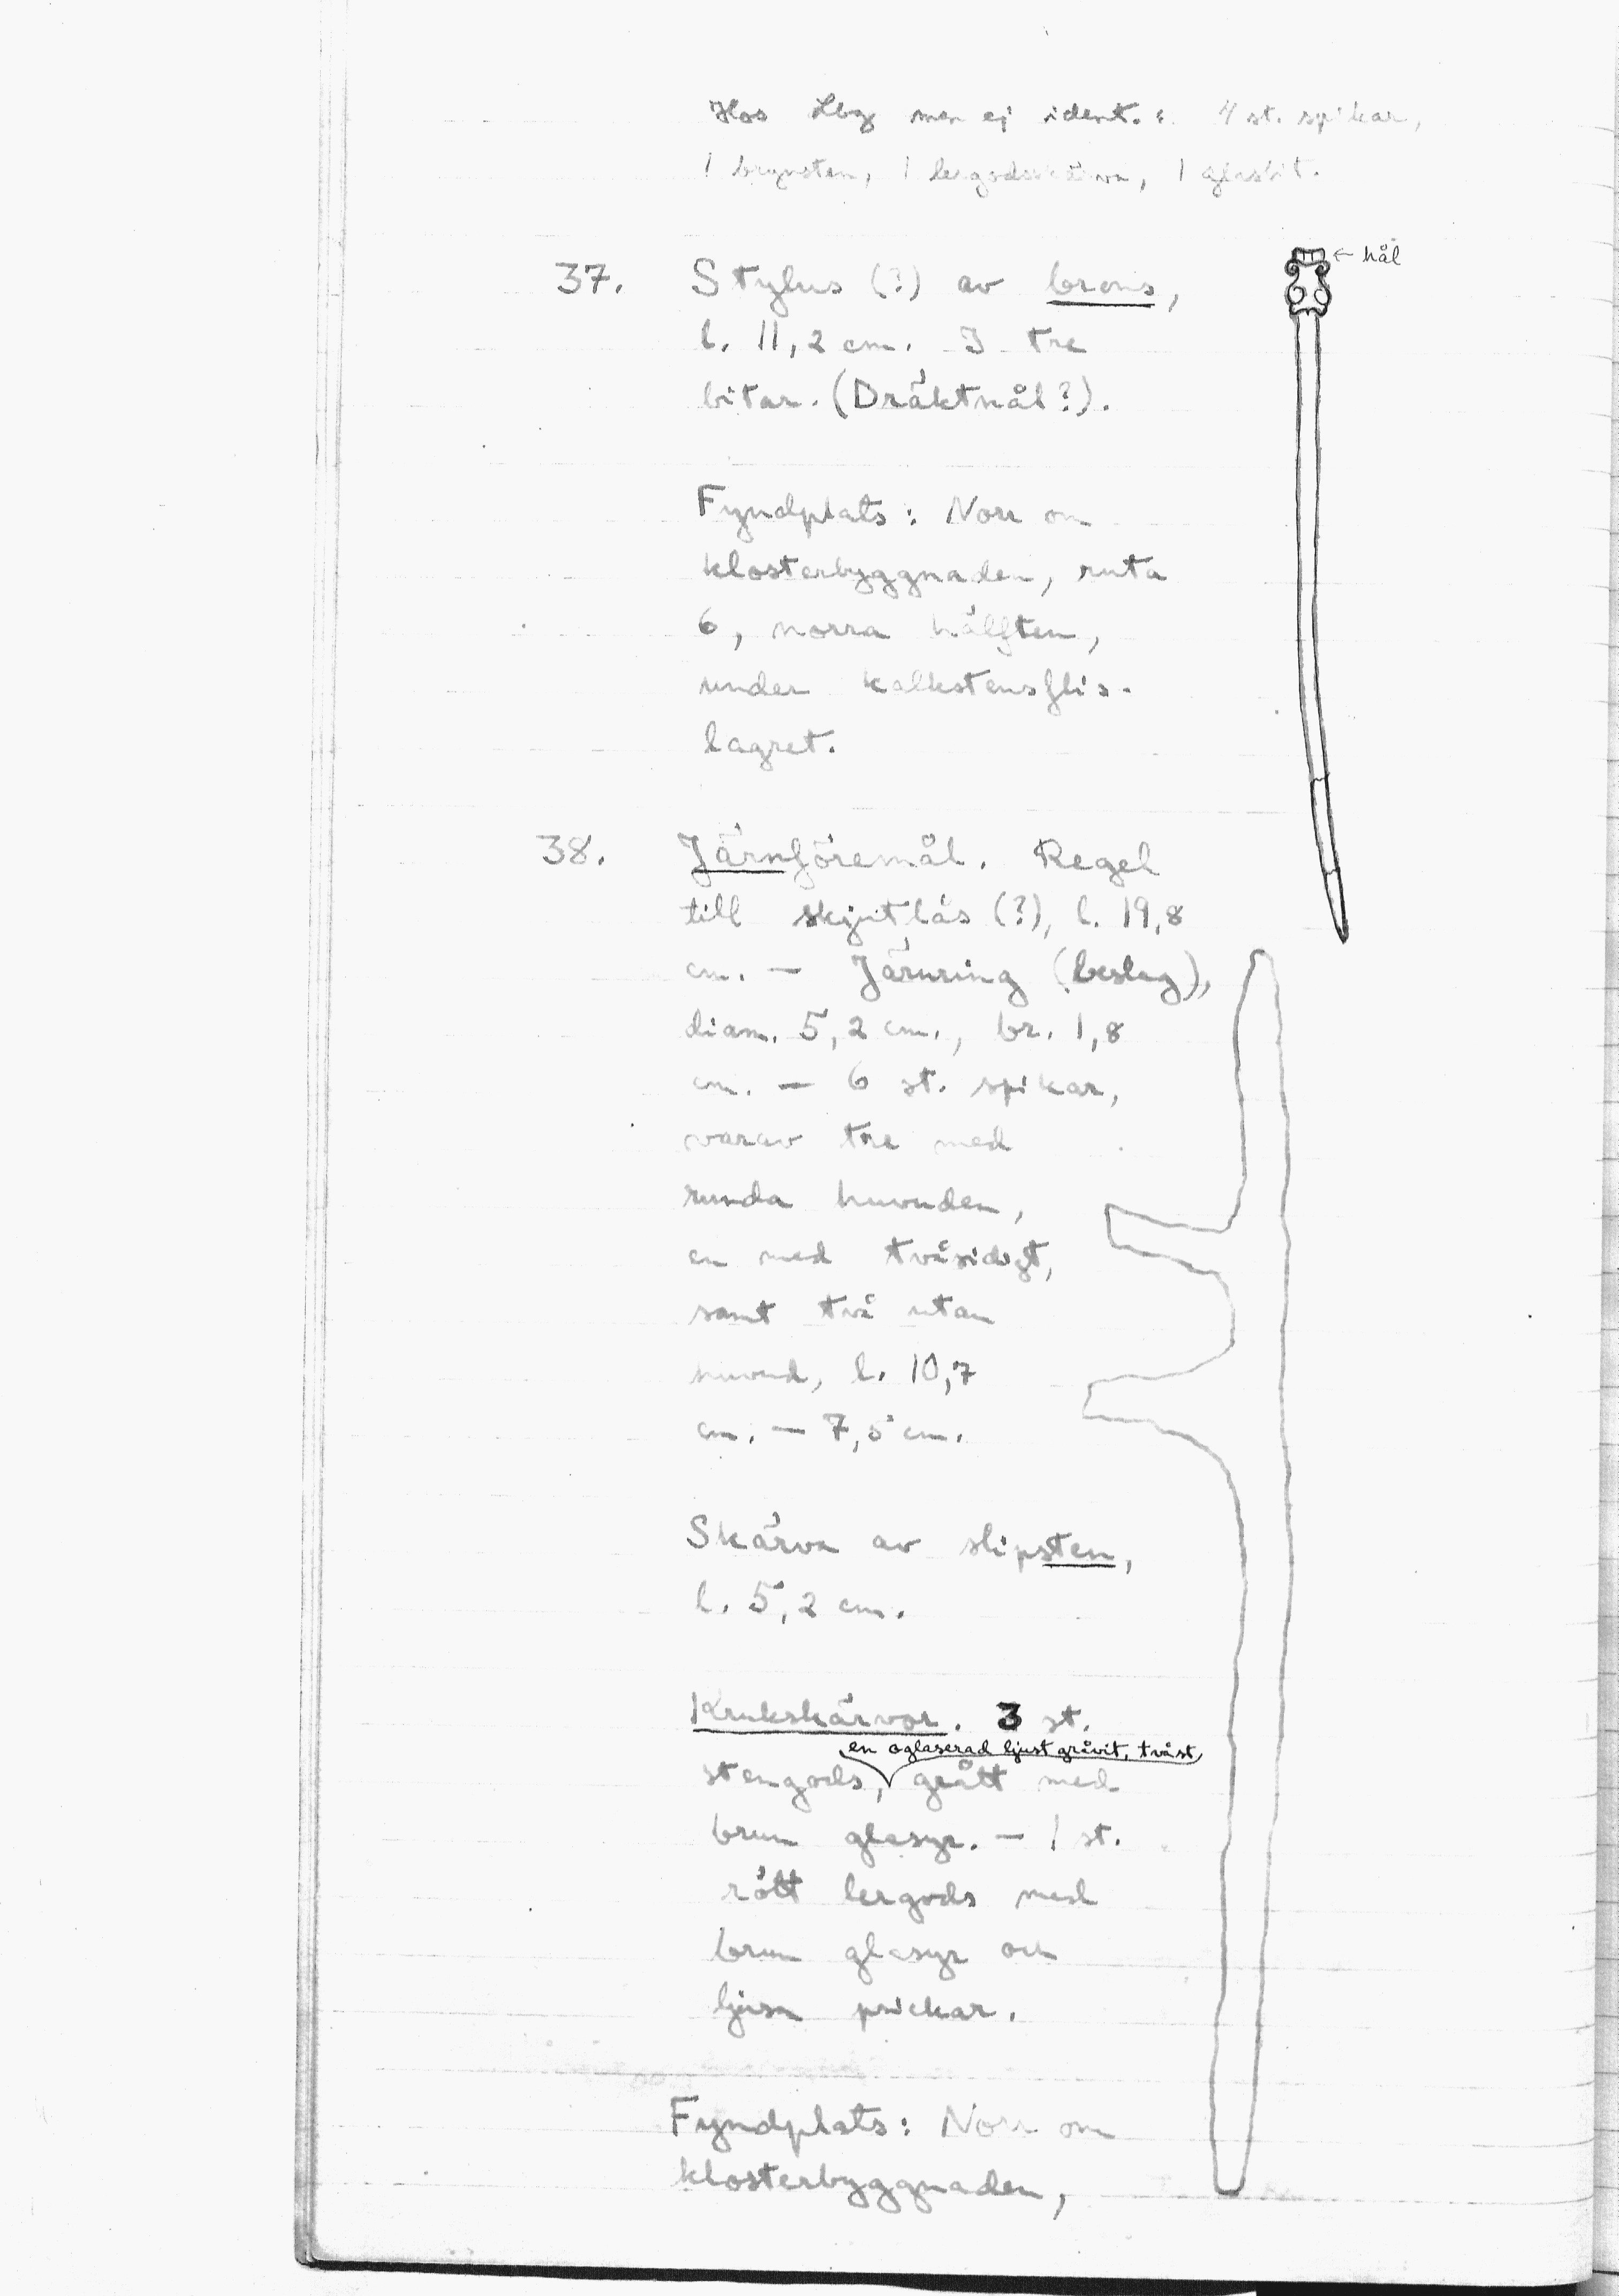 Hos Lbg men ej ident.: 4 st. spikar,
1 brynsten, 1 lergodsskärva, 1 glasbit.
37. Stylus (?) av brons,
← hål
l. 11,2 cm. I tre
bitar. (Dräktnål?).
Fyndplats: Norr om
klosterbyggnaden, ruta
6, norra hälften,
under kalkstensflis-
lagret.
38. Järnföremål. Regel
till skjutlås (?), l. 19,8
cm. — Järnring (beslag),
diam. 5,2 cm., br. 1,8
cm. — 6 st. spikar,
varav tre med
runda huvuden,
en med tvåsidigt,
samt två utan
huvud, l. 10,7
cm. — 7,5 cm.
Skärva av slipsten,
l. 5,2 cm.
Krukskärvor. 3 st.
en oglaserad ljust gråvit, två st
stengods, grått med
brun glasyr. — 1 st.
rött lergods med
brun glasyr och
ljusa prickar.
Fyndplats: Norr om
klosterbyggnaden,